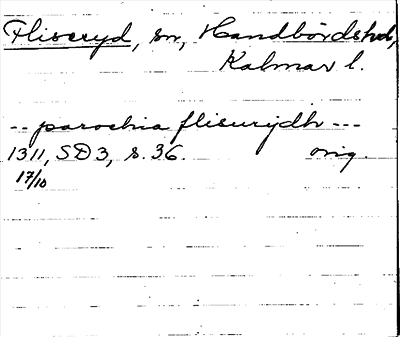 Fliseryd, sn, Handbördshd,
Kalmar l.
-- parochia flisurydh ---
1311, SD 3, s. 36. orig.
17/10